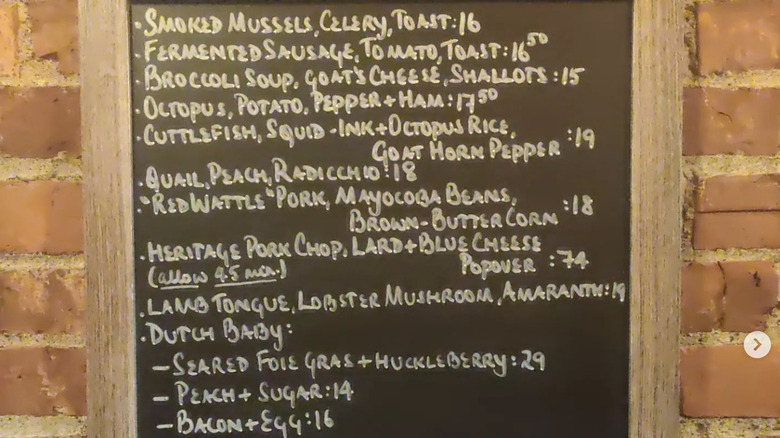 · SMOKED MUSSELS, CELERY, TOAST: 16
· FERMENTED SAUSAGE, TOMATO, TOAST: 16⁵⁰
· BROCCOLI SOUP, GOAT'S CHEESE, SHALLOTS: 15
· OCTOPUS, POTATO, PEPPER + HAM: 17⁵⁰
· CUTTLEFISH, SQUID-INK + OCTOPUS RICE,
GOAT HORN PEPPER :19
· QUAIL, PEACH, RADICCHIO: 18
· "RED WATTLE" PORK, MAYOCOBA BEANS,
BROWN-BUTTER CORN :18
· HERITAGE PORK CHOP, LARD + BLUE CHEESE
POPOVER :74
(allow 45 min.)
· LAMB TONGUE, LOBSTER MUSHROOM, AMARANTH: 19
· DUTCH BABY:
- SEARED FOIE GRAS + HUCKLEBERRY: 29
- PEACH + SUGAR: 14
- BACON + EGG: 16